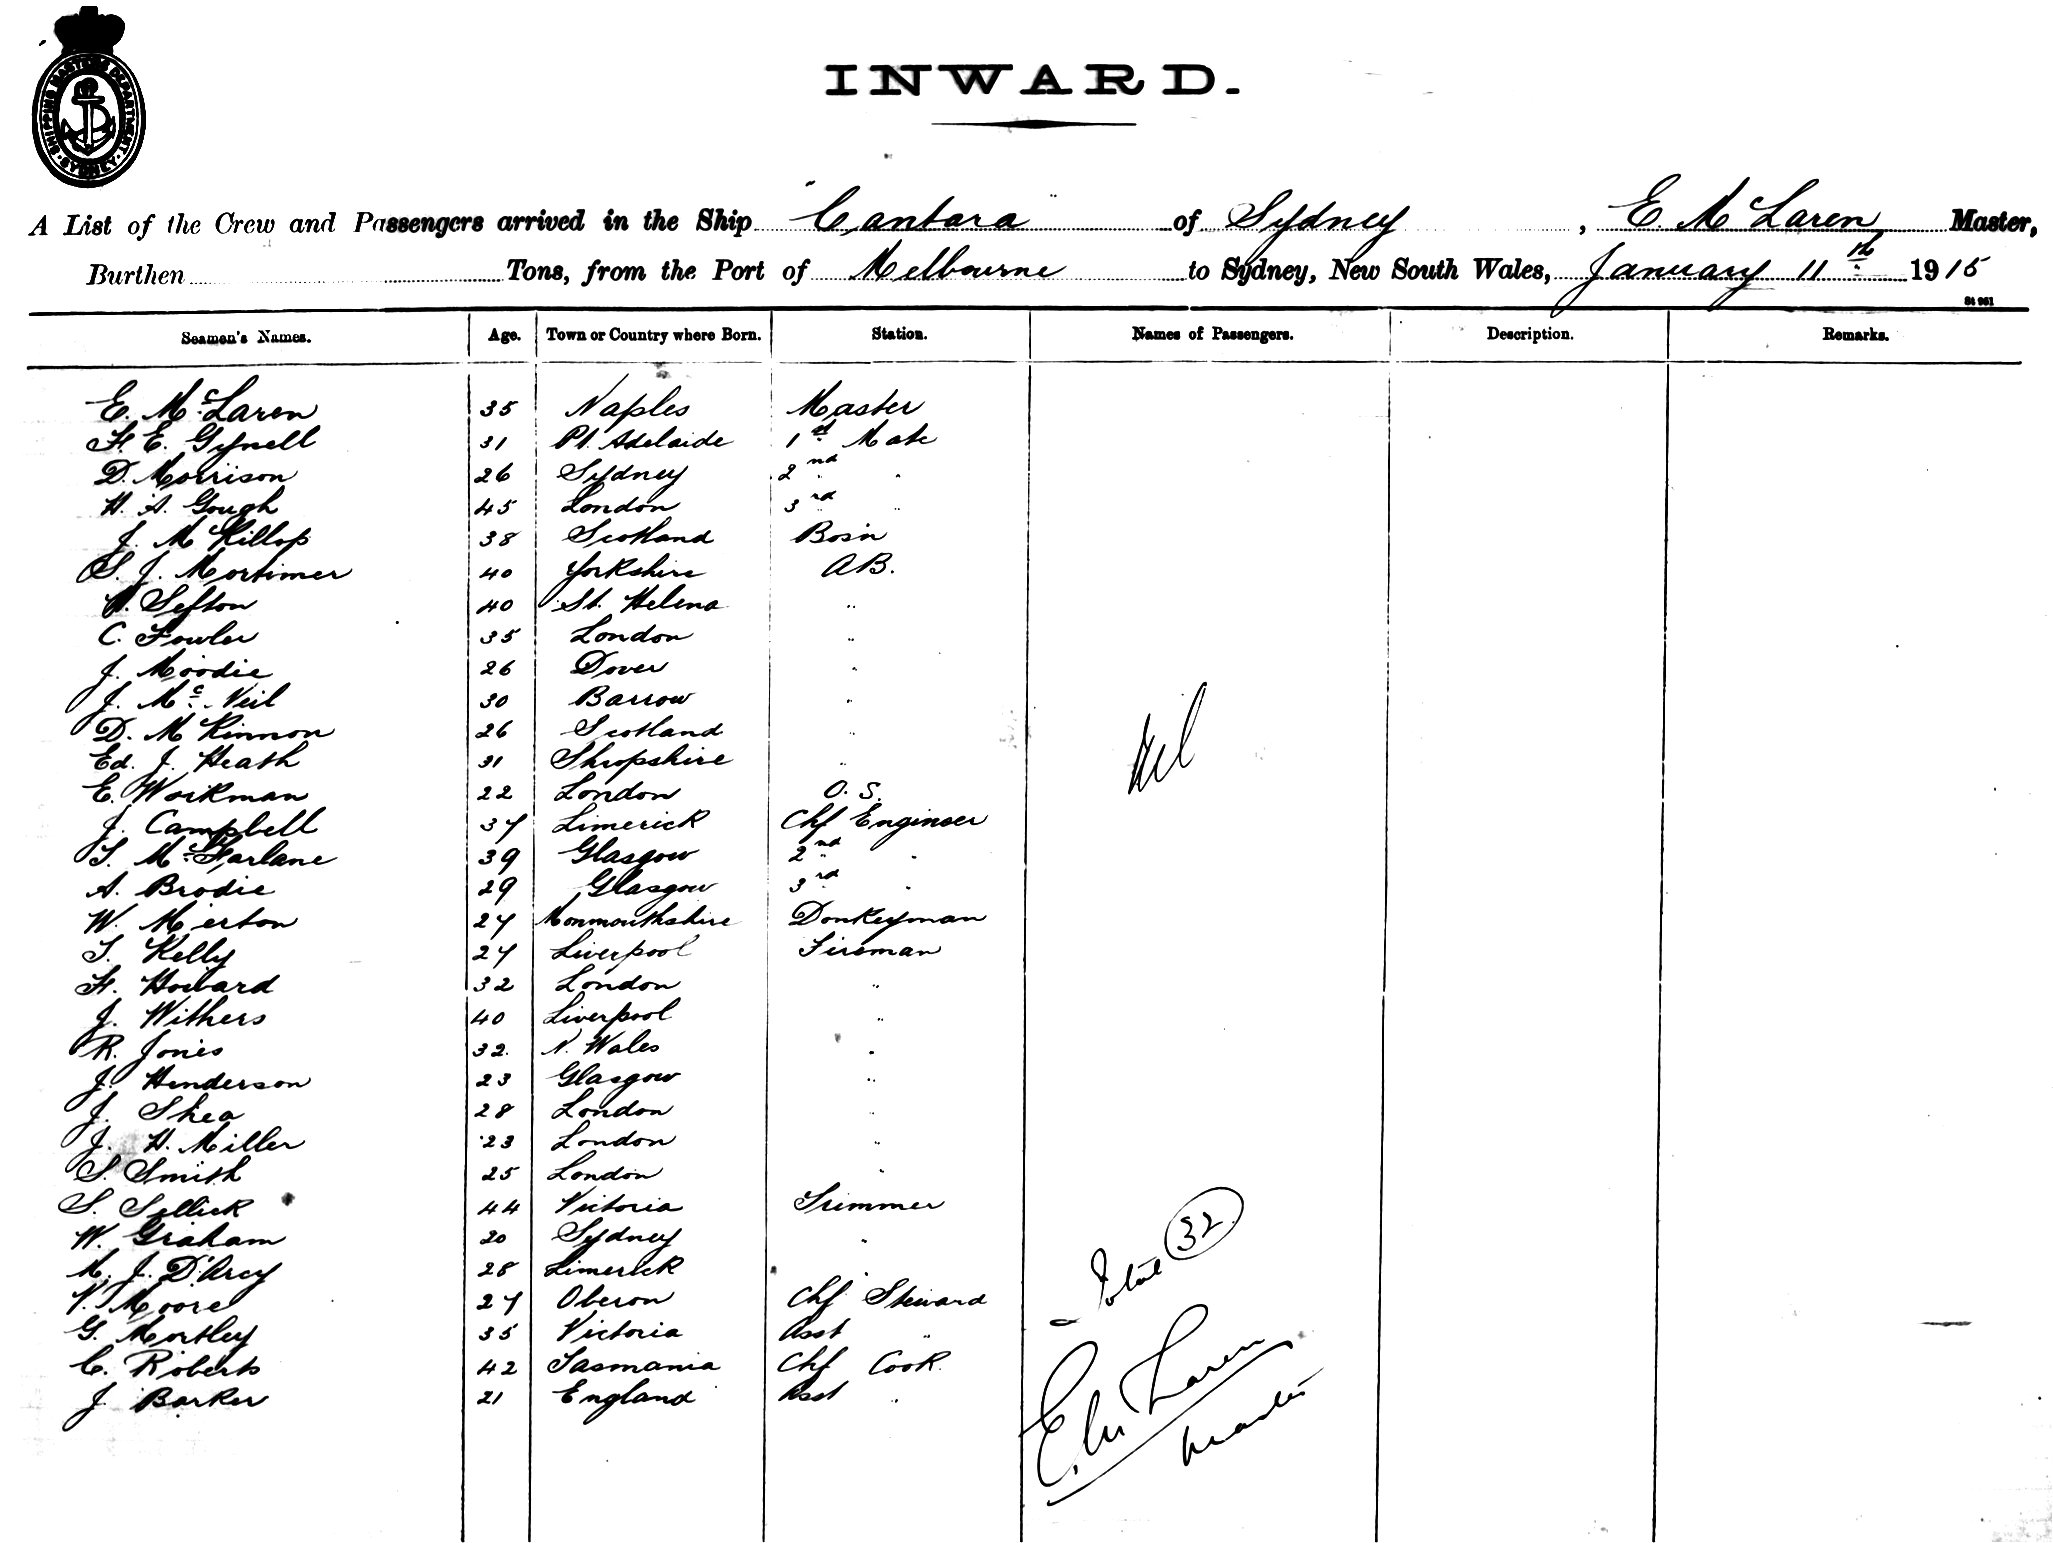 SHIPPING MASTERS DEPARTMENT · SYDNEY ·
INWARD.
A List of the Crew and Passengers arrived in the Ship "Cantara" of Sydney, E. McLaren Master,
Burthen Tons, from the Port of Melbourne to Sydney, New South Wales, January 11th 1915
St 961
Seamen's Names. Age. Town or Country where Born. Station. Names of Passengers. Description. Remarks.
E. McLaren 35 Naples Master
F. E. Gynell 31 Pt. Adelaide 1st Mate
D. Morrison 26 Sydney 2nd "
H. A. Gough 45 London 3rd "
J. McKillop 38 Scotland Bosn
S. J. Mortimer 40 Yorkshire AB.
Sefton 40 St. Helena "
C. Fowler 35 London "
J. Moodie 26 Dover "
J. McNeil 30 Barrow "
D. McKinnon 26 Scotland "
Ed. J. Heath 31 Shropshire "
Nil
E. Workman 22 London O. S.
J. Campbell 37 Limerick Chf Engineer
T. McFarlane 39 Glasgow 2nd "
A. Brodie 29 Glasgow 3rd "
W. Merton 27 Monmouthshire Donkeyman
T. Kelly 27 Liverpool Fireman
F. Howard 32 London "
J. Withers 40 Liverpool "
R. Jones 32. N. Wales "
J. Henderson 23 Glasgow "
J. Shea 28 London "
J. H. Miller 23 London "
S. Smith 25 London "
S. Sellick 44 Victoria Trimmer
W. Graham 20 Sydney "
M. J. D'Arcy 28 Limerick "
Total 32
V. Moore 27 Oberon Chf Steward
G. Mortley 35 Victoria Asst "
C. Roberts 42 Tasmania Chf Cook.
J. Barker 21 England Asst "
E. McLaren
Master